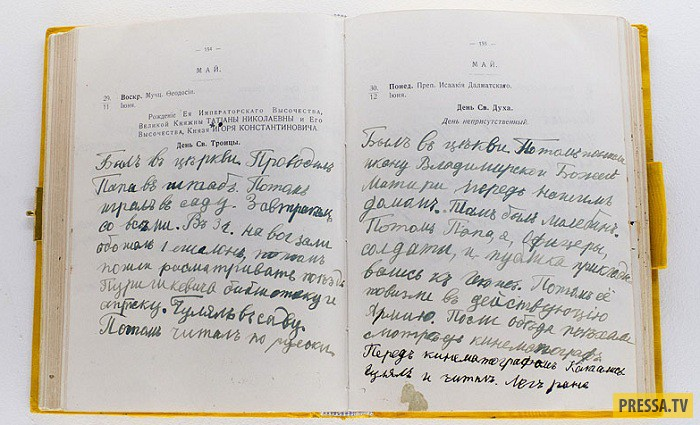 — 154 —
МАЙ.
29. Воскр. Мучц. Ѳеодосіи.
11 Іюня.
Рожденіе Ея Императорскаго Высочества,
Великой Княжны ТАТІАНЫ НИКОЛАЕВНЫ и Его
Высочества, Князя ИГОРЯ КОНСТАНТИНОВИЧА.
День Св. Троицы.
Былъ въ церкви. Проводилъ
Папа въ штабъ. Потомъ
игралъ въ саду. Завтракалъ
со всѣми. Въ 3 ч. на вокзали
1 эшалонъ, потомъ
пошли расматривать поѣздъ
Пуришкевича библиотеку и
аптеку. Гулялъ въ саду.
Потомъ читалъ по руски
— 155 —
МАЙ.
30. Понед. Преп. Исаакія Далматскаго.
12 Іюня.
День Св. Духа.
День неприсутственный.
Былъ въ цѣркви. Потомъ
икону Владимирской Божіей
Матири передъ нашимъ
домамъ. Тамъ былъ малебенъ.
Потомъ Папа, а, Офицеры,
солдаты, и публика приклады
вались къ иконѣ. Потомъ её
повизли въ действующую
Армию. После обѣда поѣхали
смотрѣть кинематографъ
Передъ кинематографомъ Катались
Гулялъ и читалъ. Легъ рано
PRESSA.TV